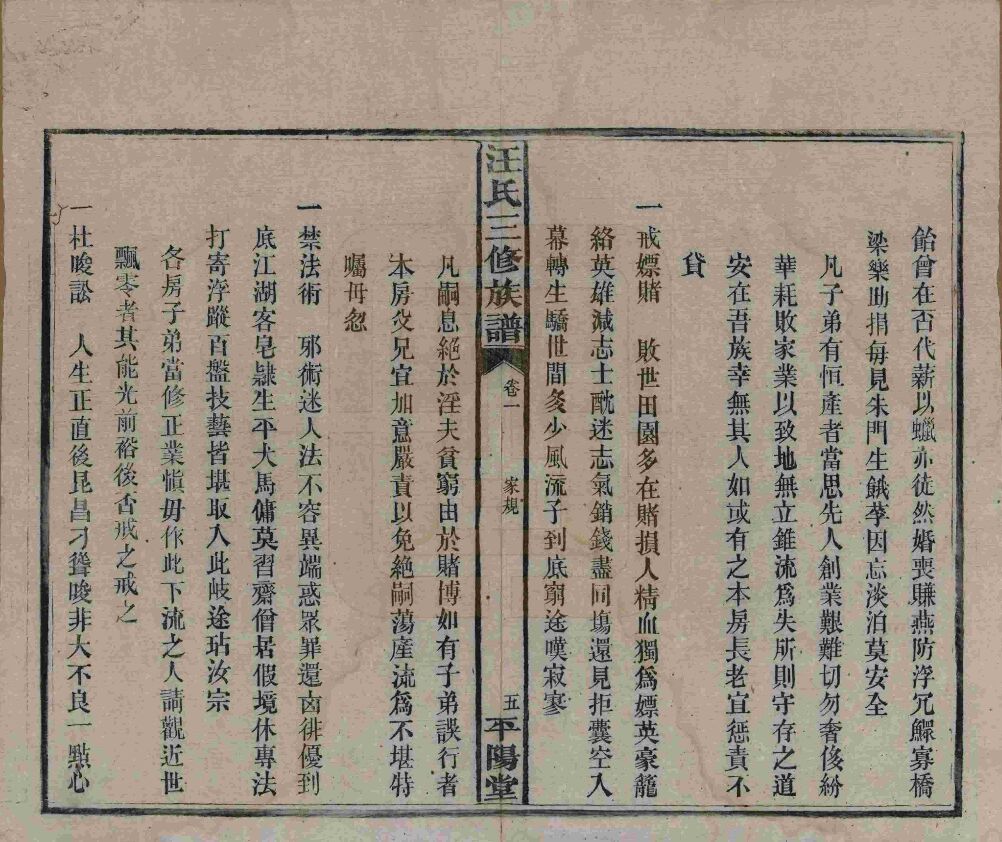 飴曾在否代薪以蠟亦徒然婚喪賺燕防浮冗鰥寡橋
梁樂助捐每見朱門生餓莩因忘淡泊莫安全
凡子弟有恒產者當思先人創業艱難切勿奢侈紛
華耗敗家業以致地無立錐流爲失所則守存之道
安在吾族幸無其人如或有之本房長老宜懲責不
貸
一戒嫖賭 敗世田園多在賭損人精血獨爲嫖英豪籠
絡英雄減志士酖迷志氣銷錢盡回塲還見拒囊空入
幕轉生驕世間多少風流子到底窮途嘆寂寥
凡嗣息絕於淫夫貧窮由於賭博如有子弟誤行者
本房父兄宜加意嚴責以免絕嗣蕩產流爲不堪特
囑毋忽
汪氏三修族譜 卷一 家規 五 平陽堂
一禁法術 邪術迷人法不容異端惑眾罪還凶徘優到
底江湖客皂隷生平犬馬傭莫習齋僧居假境休專法
打寄浮蹤百盤技藝皆堪取入此歧途玷汝宗
各房子弟當修正業愼毋作此下流之人請觀近世
飄零者其能光前裕後否戒之戒之
一杜唆訟 人生正直後昆昌刁聳唆非大不良一點心